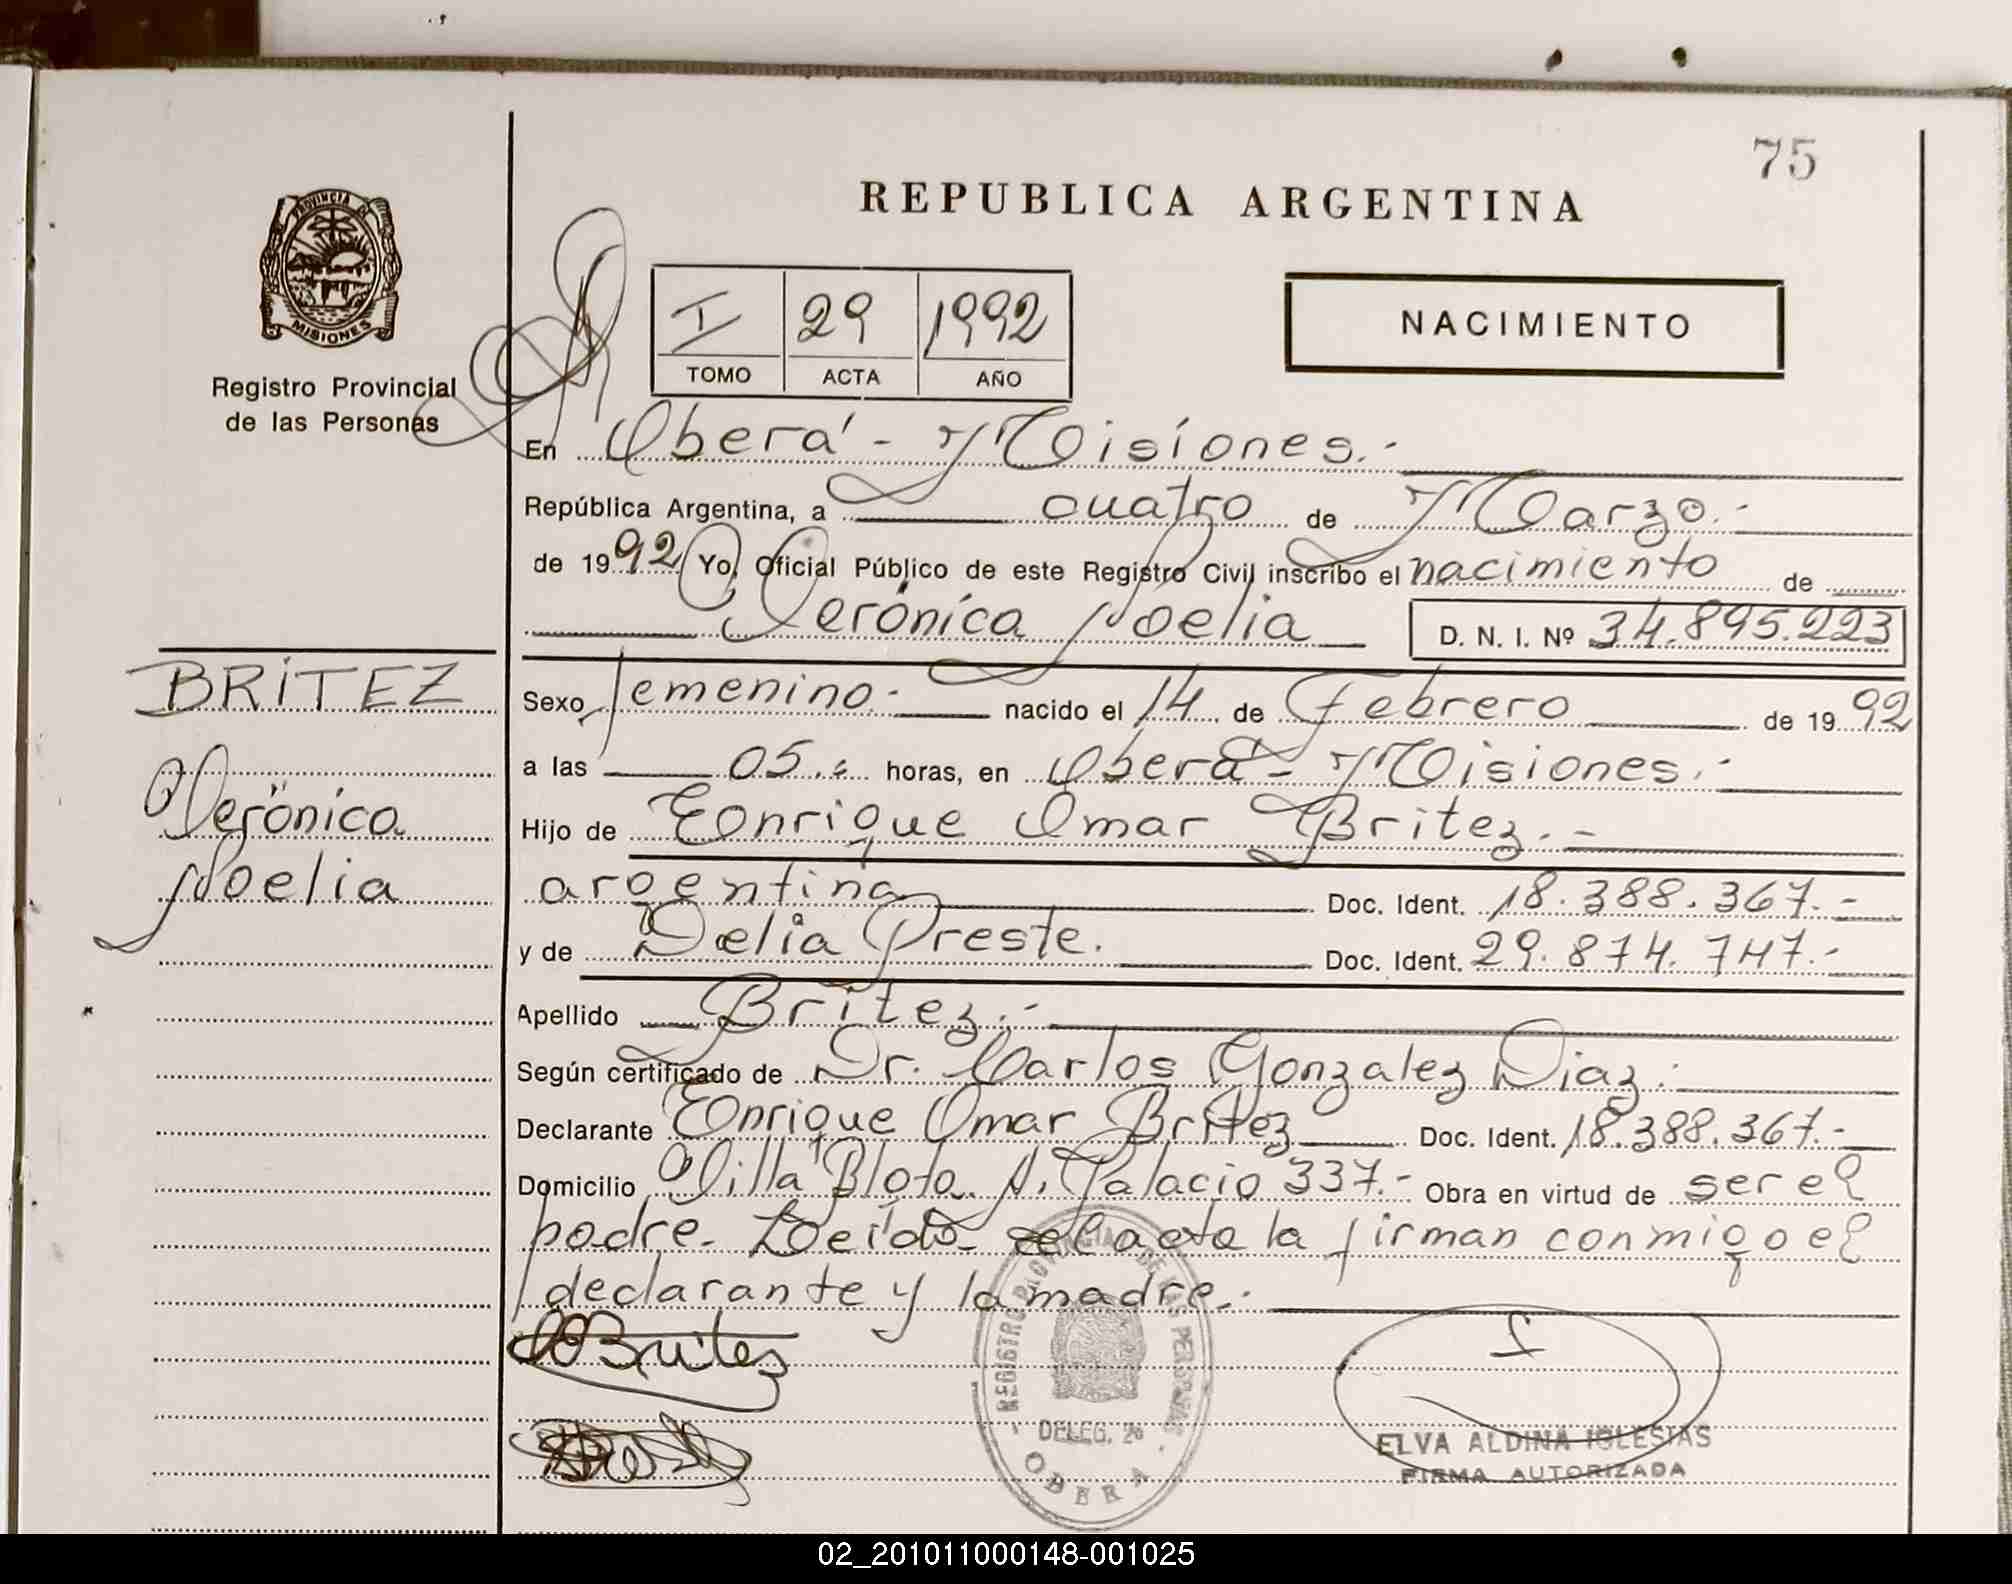 75
REPUBLICA ARGENTINA
PROVINCIA DE
MISIONES
Registro Provincial
de las Personas
I 29 1992
TOMO ACTA AÑO
NACIMIENTO
En Oberá - Misiones.-
República Argentina, a cuatro de Marzo.-
de 1992 Yo, Oficial Público de este Registro Civil inscribo el nacimiento de
Verónica Noelia D. N. I. Nº 34.895.223
BRITEZ
Verónica
Noelia
Sexo femenino.- nacido el 14 de Febrero de 1992
a las 05.- horas, en Oberá - Misiones.-
Hijo de Enrique Omar Britez.-
argentina Doc. Ident. 18.388.367.-
y de Delia Preste. Doc. Ident. 29.874.747.-
Apellido Britez.-
Según certificado de Dr. Carlos Gonzalez Diaz.
Declarante Enrique Omar Britez Doc. Ident. 18.388.367.-
Domicilio Villa Blota. A. Palacio 337.- Obra en virtud de ser el
padre. Leída el acta la firman conmigo el
declarante y la madre.-
Britez
REGISTRO PROVINCIAL DE LAS PERSONAS
DELEG.
OBERA
ELVA ALDINA IGLESIAS
FIRMA AUTORIZADA
02_201011000148-001025